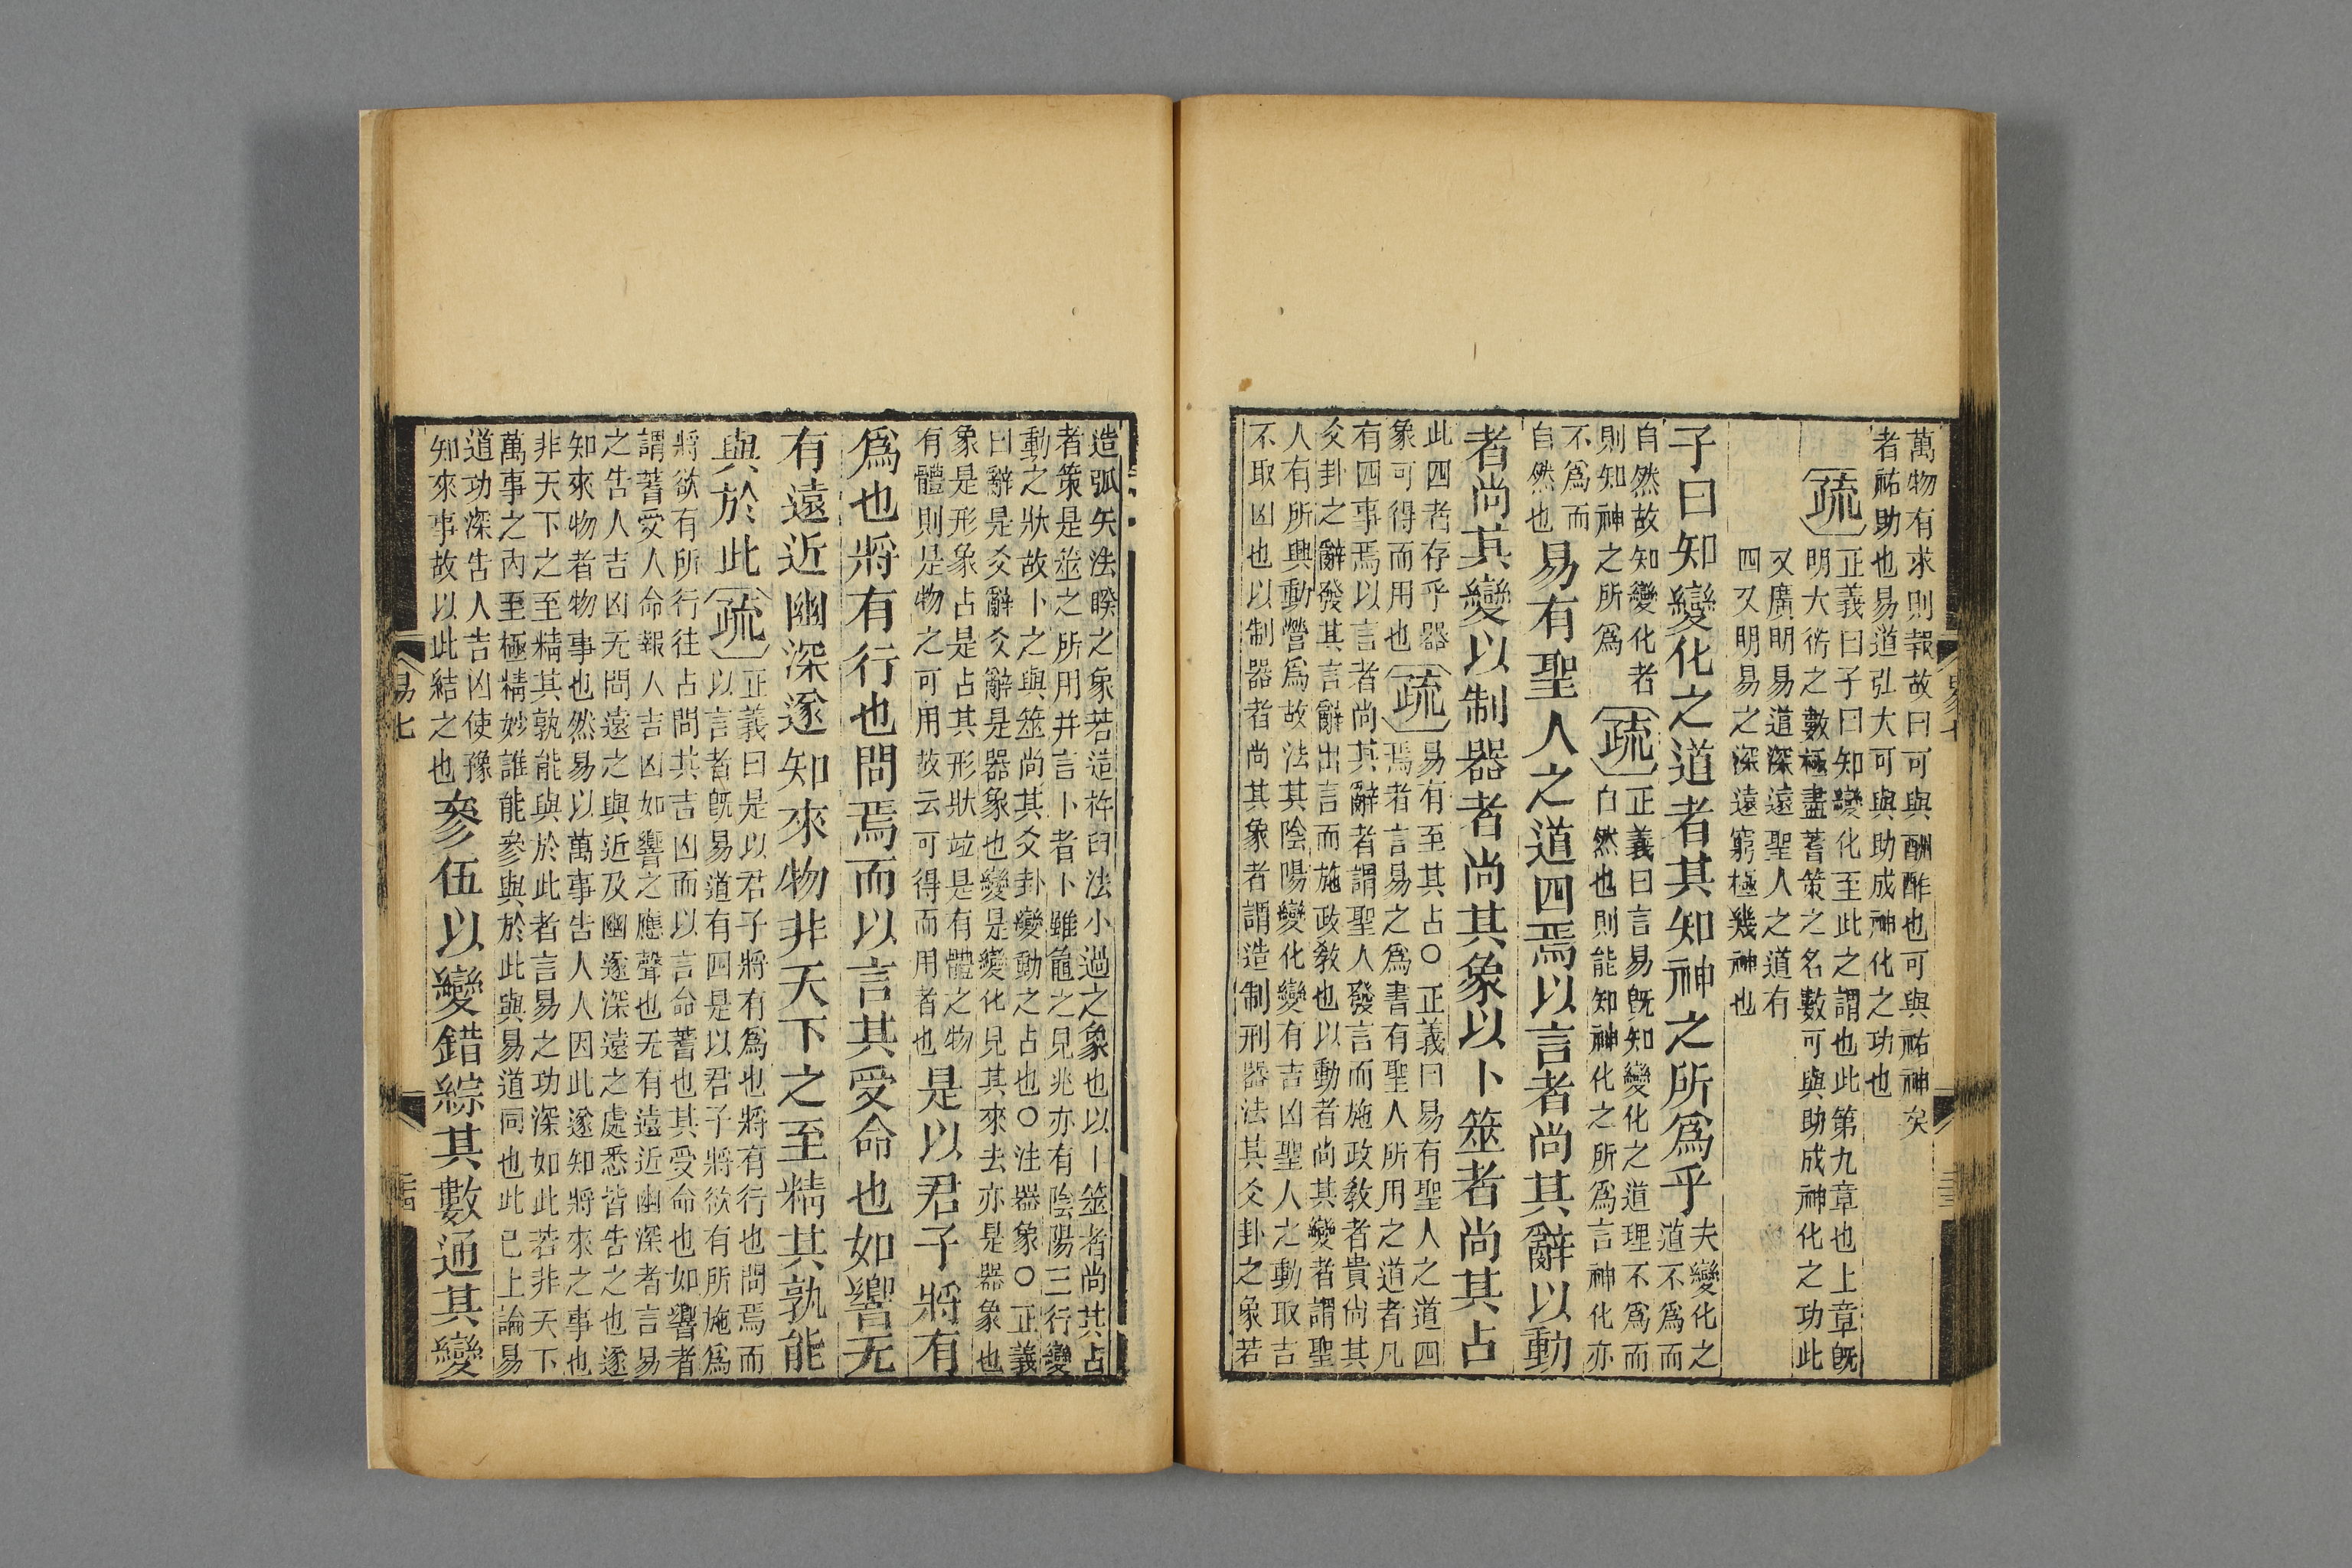 萬物有求則報故曰可與酬酢也可與祐神矣
者祐助也易道弘大可與助成神化之功也
疏
正義曰子曰知變化至此之謂也此第九章也上章旣
明大衍之數極盡蓍策之名數可與助成神化之功此
又廣明易道深遠聖人之道有
四又明易之深遠窮極幾神也
子曰知變化之道者其知神之所爲乎
夫變化之
道不爲而
自然故知變化者
則知神之所爲
疏
正義曰言易旣知變化之道理不爲而
自然也則能知神化之所爲言神化亦
不爲而
自然也
易有聖人之道四焉以言者尚其辭以動
者尚其變以制器者尚其象以卜筮者尚其占
此四者存乎器
象可得而用也
疏
易有至其占○正義曰易有聖人之道四
焉者言易之爲書有聖人所用之道者凡
有四事焉以言者尚其辭者謂聖人發言而施政敎者貴尚其
爻卦之辭發其言辭出言而施政敎也以動者尚其變者謂聖
人有所興動營爲故法其陰陽變化變有吉凶聖人之動取吉
不取凶也以制器者尚其象者謂造制刑器法其爻卦之象若
造弧矢法睽之象若造杵臼法小過之象也以卜筮者尚其占
者策是筮之所用并言卜者卜雖龜之見兆亦有陰陽三行變
動之狀故卜之與筮尚其爻卦變動之占也○注器象○正義
曰辭是爻辭爻辭是器象也變是變化見其來去亦是器象也
象是形象占是占其形狀竝是有體之物
有體則是物之可用故云可得而用者也
是以君子將有
爲也將有行也問焉而以言其受命也如響无
有遠近幽深遂知來物非天下之至精其孰能
與於此
疏
正義曰是以君子將有爲也將有行也問焉而
以言者旣易道有四是以君子將欲有所施爲
將欲有所行往占問其吉凶而以言命蓍也其受命也如響者
謂蓍受人命報人吉凶如響之應聲也无有遠近幽深者言易
之告人吉凶无問遠之與近及幽邃深遠之處悉皆告之也遂
知來物者物事也然易以萬事告人人因此遂知將來之事也
非天下之至精其孰能與於此者言易之功深如此若非天下
萬事之內至極精妙誰能參與於此與易道同也此已上論易
道功深告人吉凶使豫
知來事故以此結之也
參伍以變錯綜其數通其變
易七